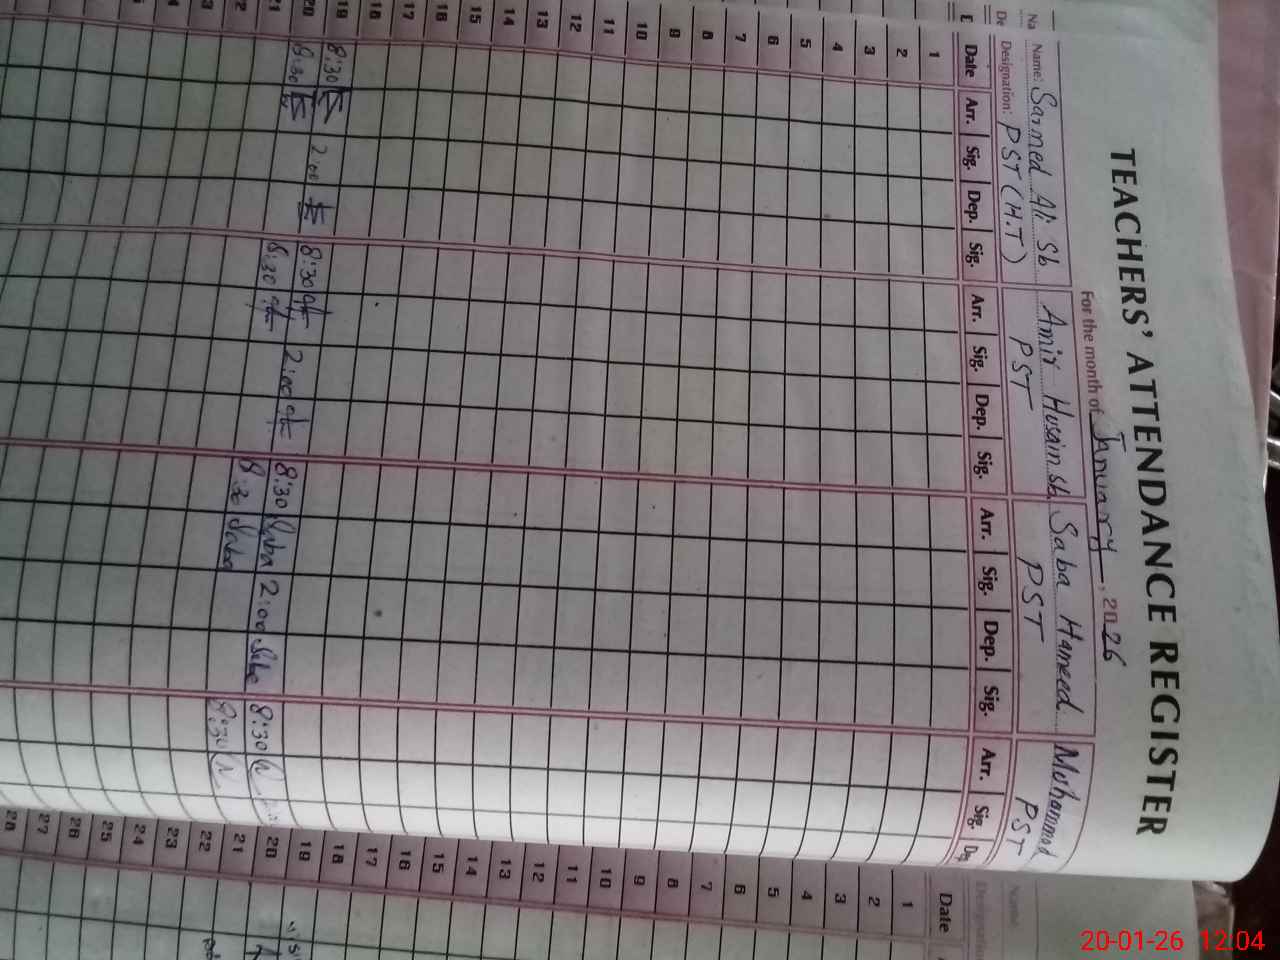 TEACHERS' ATTENDANCE REGISTER
For the month of January, 2026
Na Name: Sarmed Ali Sb Amir Husain sb Saba Hameed Mohammad
De Designation: PST (H.T) PST PST PST
Date Arr. Sig. Dep. Sig. Arr. Sig. Dep. Sig. Arr. Sig. Dep. Sig. Arr. Sig.
1
2
3
4
5
6
7
8
9
10
11
12
13
14
15
16
17
18
19 8:30 2:00 8:30 2:00 8:30 Saba 2:00 Saba 8:30
20 8:30 8:30 8:30 Saba 8:30
21
22
23
Name:
Date
1
2
3
4
5
6
7
8
9
10
11
12
13
14
15
16
17
18
19
20
21
22
23
24
25
26
27
28
20-01-26 12:04